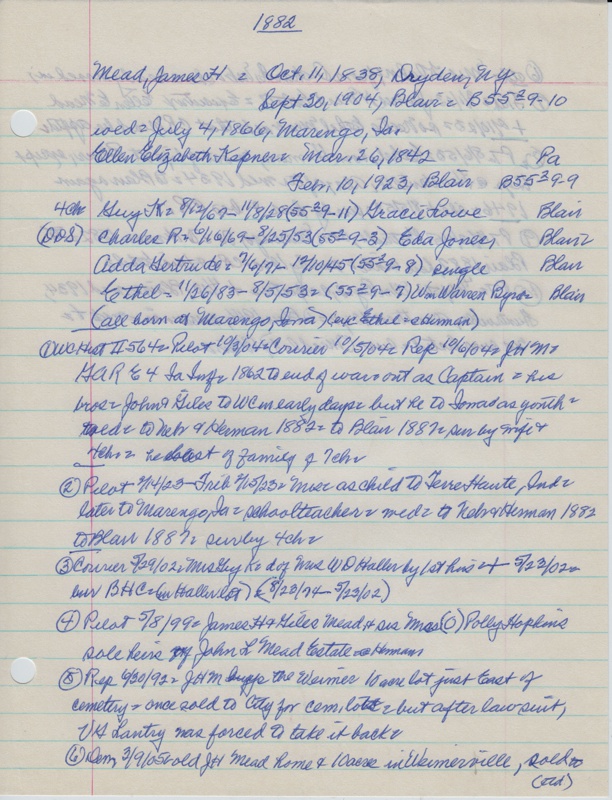 1882
Mead, James H = Oct. 11, 1838, Dryden, NY
Sept 30, 1904, Blair = B 55-3-9-10
wed = July 4, 1866, Marengo, Ia.
Ellen Elizabeth Kapner = Mar. 26, 1842 Pa
Feb. 10, 1923, Blair B 55-3-9-9
4ch Guy K = 8/12/67-11/8/28 (55-3-9-11) Gracie Lowe Blair
(DDS) Charles R = 6/16/69-8/25/53 (55-3-9-3) Eda Jones, Blair
Adda Gertrude = 7/6/71-12/10/45 (55-3-9-8) single Blair
Ethel = 11/26/83-8/5/53 = (55-3-9-7) Wm Warren Byers = Blair
(all born at Marengo, Iowa) (exc Ethel = Herman)
① WC Hist II 564 = Pilot 10/5/04 = Courier 10/5/04 = Rep 10/6/04 = JHM =
GAR E 4 Ia Inf = 1862 to end of war = out as Captain = his
bros = John & Giles to WC in early days = but he to Iowa as youth =
wed = to Nebr & Herman 1882 = to Blair 1887 = sur by wife &
4ch = he of family of 7ch =
② Pilot 2/14/23 - Trib 2/15/23 = Mrs = as child to Terre Haute, Ind =
later to Marengo, Ia = schoolteacher = wed = to Nebr & Herman 1882
to Blair 1887 = sur by 4ch =
③ Courier 5/29/02 = Mrs Guy K = d of Mrs WD Haller by 1st hus = + 5/23/02 =
bur BHC = (in Haller lot) = (8/23/74 - 5/23/02)
④ Pilot 5/8/99 = James H & Giles Mead & sis Mrs () Polly Hopkins
sole heirs of John L Mead Estate = Herman =
⑤ Rep 6/30/92 = JHM buys the Weimer 10 acre lot just East of
cemetery = once sold to City for cem lots = but after law suit,
VG Lantry was forced to take it back =
⑥ Dem, 3/9/05 = old JH Mead home & 10 acre in Weimerville, sold to